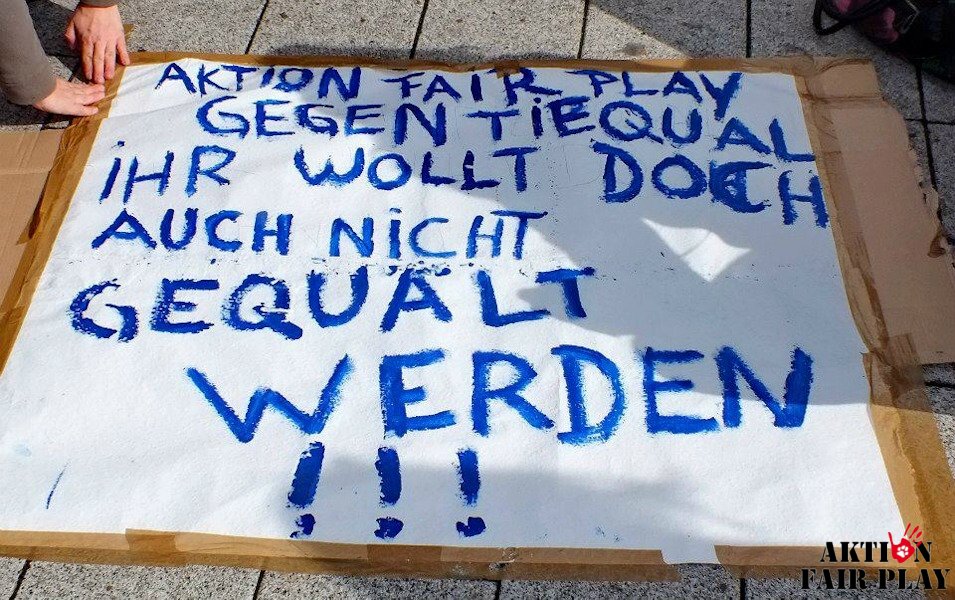 AKTION FAIR PLAY
GEGEN TIEQUAL
iHR WOLLT DOCH
AUCH NiCHT
GEQUÄLT
WERDEN
!!!
AKTION
FAIR PLAY